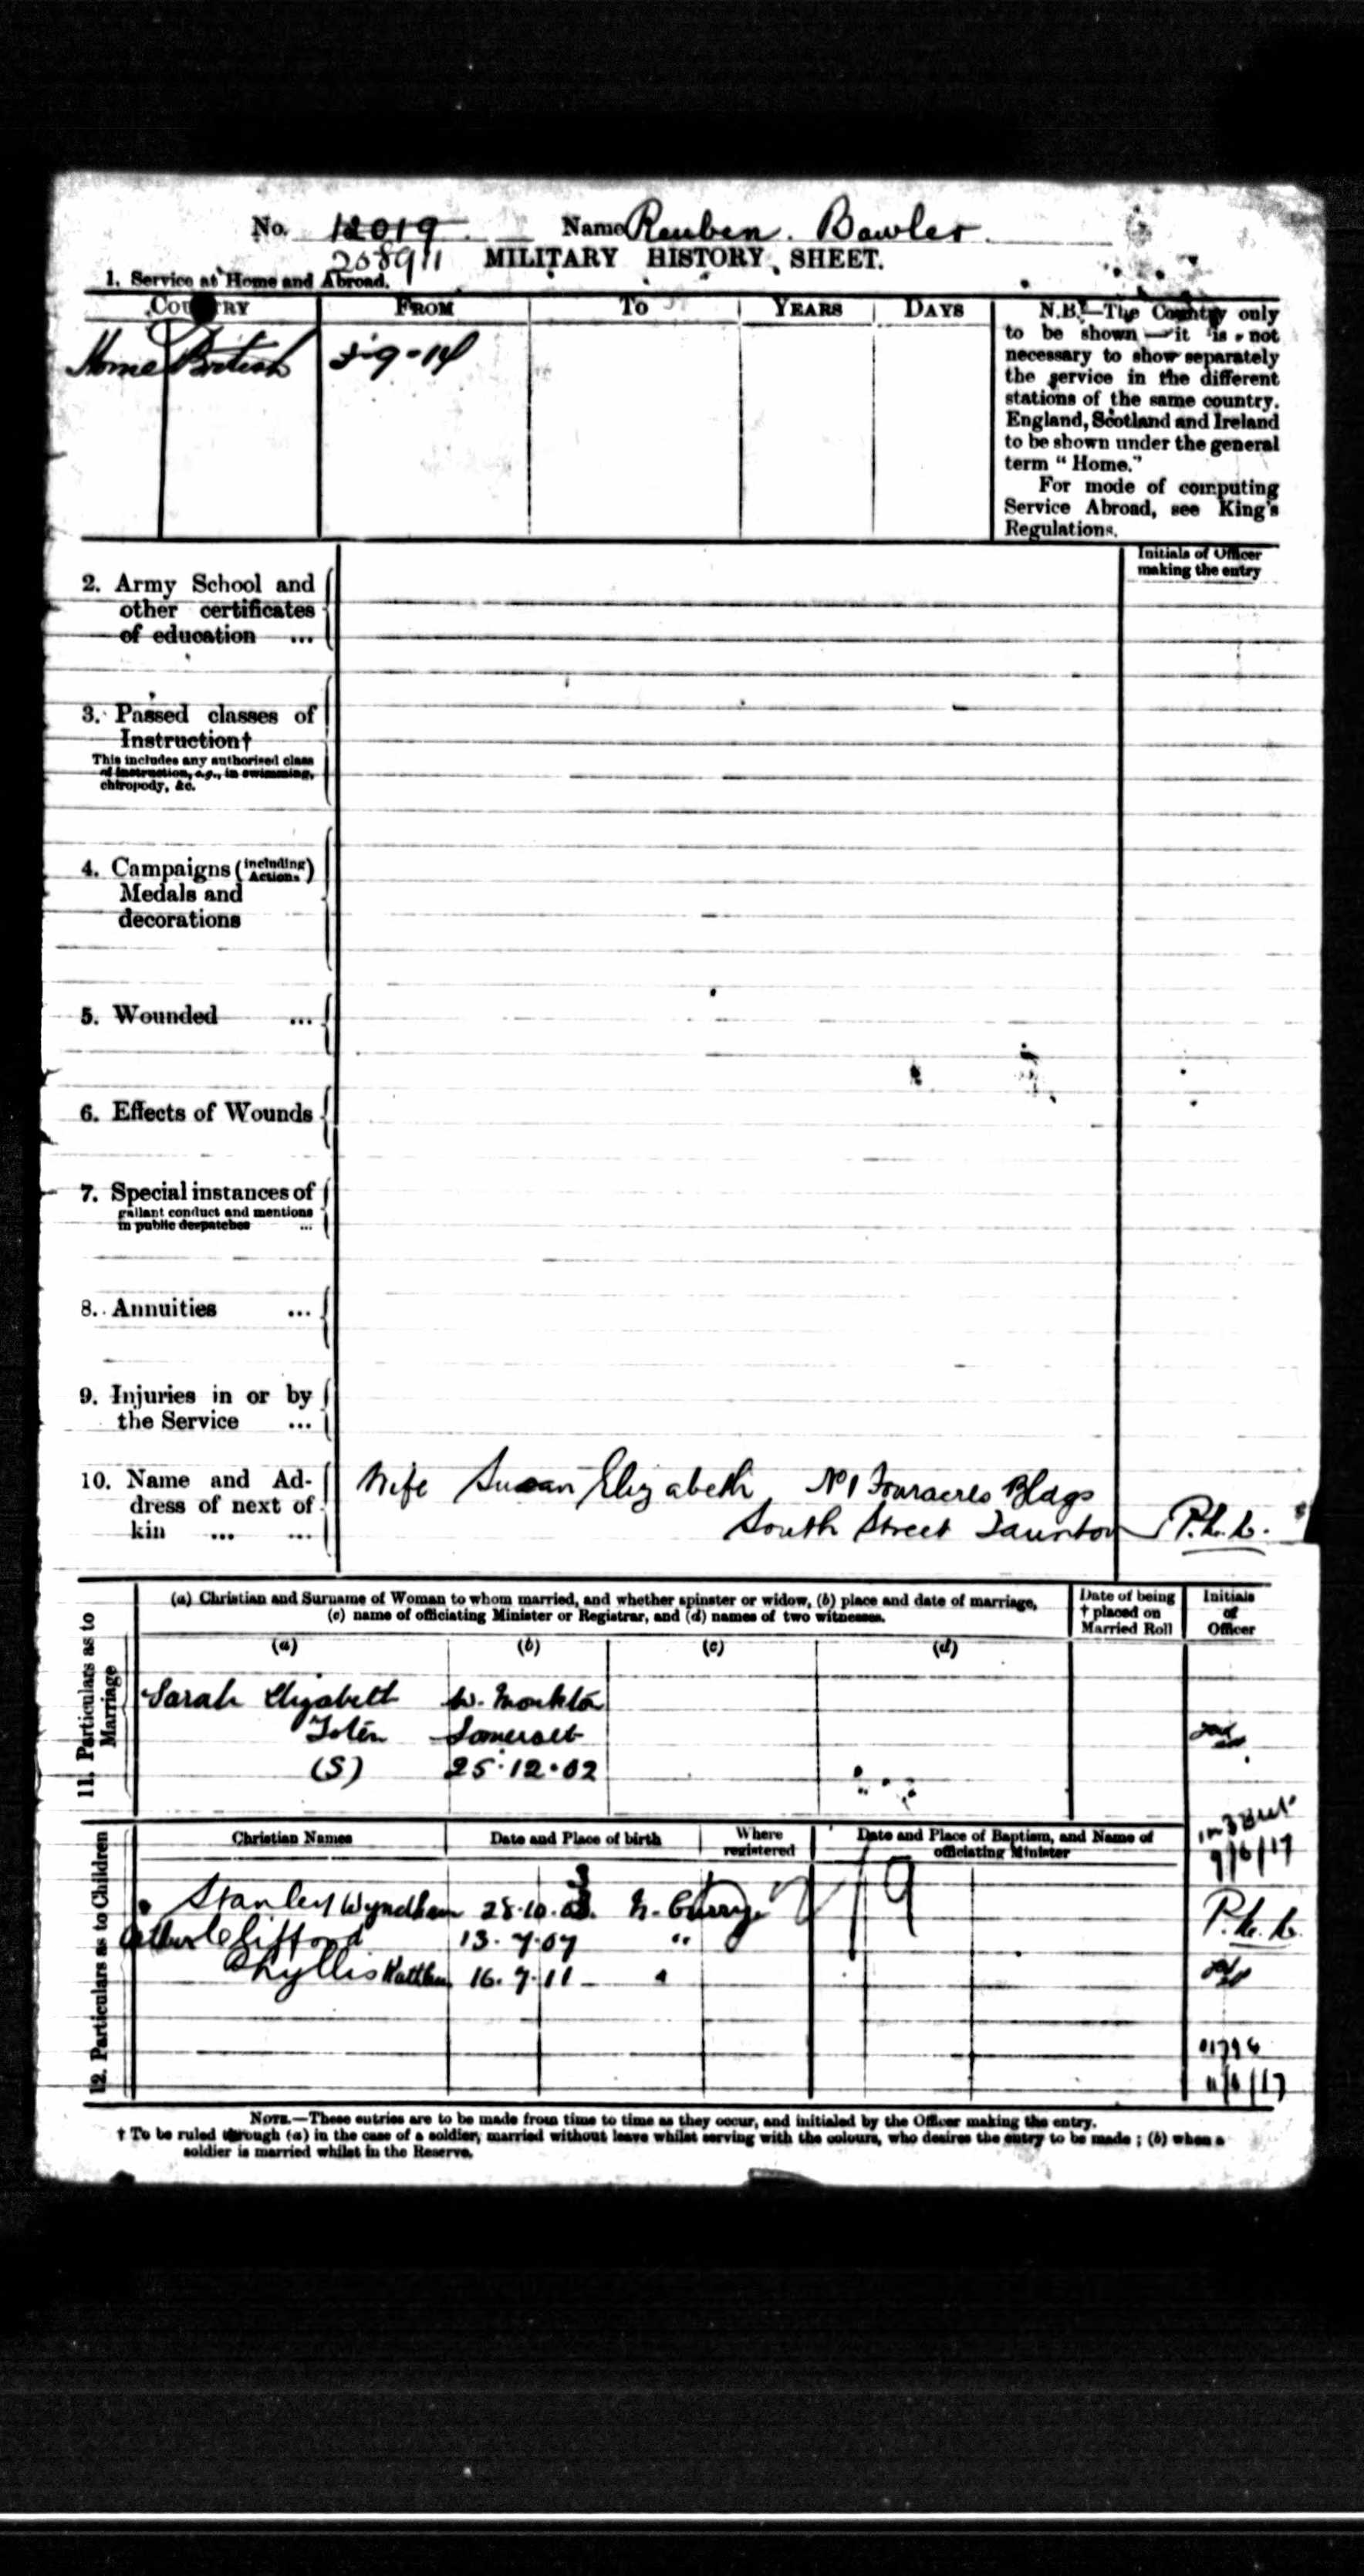 No. 12019 Name Reuben Bowler
208911 MILITARY HISTORY SHEET.
1. Service at Home and Abroad.
COUNTRY FROM TO YEARS DAYS
Home British 3-9-14
N.B.—The Country only
to be shown—it is not
necessary to show separately
the service in the different
stations of the same country.
England, Scotland and Ireland
to be shown under the general
term "Home."
For mode of computing
Service Abroad, see King's
Regulations.
Initials of Officer
making the entry
2. Army School and
other certificates
of education ...
3. Passed classes of
Instruction†
This includes any authorised class
of instruction, e.g., in swimming,
chiropody, &c.
4. Campaigns (including Actions)
Medals and
decorations
5. Wounded ...
6. Effects of Wounds
7. Special instances of
gallant conduct and mentions
in public despatches ...
8. Annuities ...
9. Injuries in or by
the Service ...
10. Name and Ad-
dress of next of
kin ... ...
Wife Susan Elizabeth No 1 Fouracres Bldgs
South Street Taunton
11. Particulars as to
Marriage
(a) Christian and Surname of Woman to whom married, and whether spinster or widow, (b) place and date of marriage,
(c) name of officiating Minister or Registrar, and (d) names of two witnesses.
Date of being
† placed on
Married Roll
Initials
of
Officer
(a) (b) (c) (d)
Sarah Elizabeth W. Monkton
Somerset
(S) 25.12.02
12. Particulars as to Children
Christian Names Date and Place of birth Where
registered
Date and Place of Baptism, and Name of
officiating Minister
9/6/17
Stanley Wyndham 28.10.03 N. Curry
Arthur Clifford 13.7.07 "
Phyllis 16.7.11 "
11/6/17
NOTE.—These entries are to be made from time to time as they occur, and initialed by the Officer making the entry.
† To be ruled through (a) in the case of a soldier, married without leave whilst serving with the colours, who desires the entry to be made; (b) when a
soldier is married whilst in the Reserve.